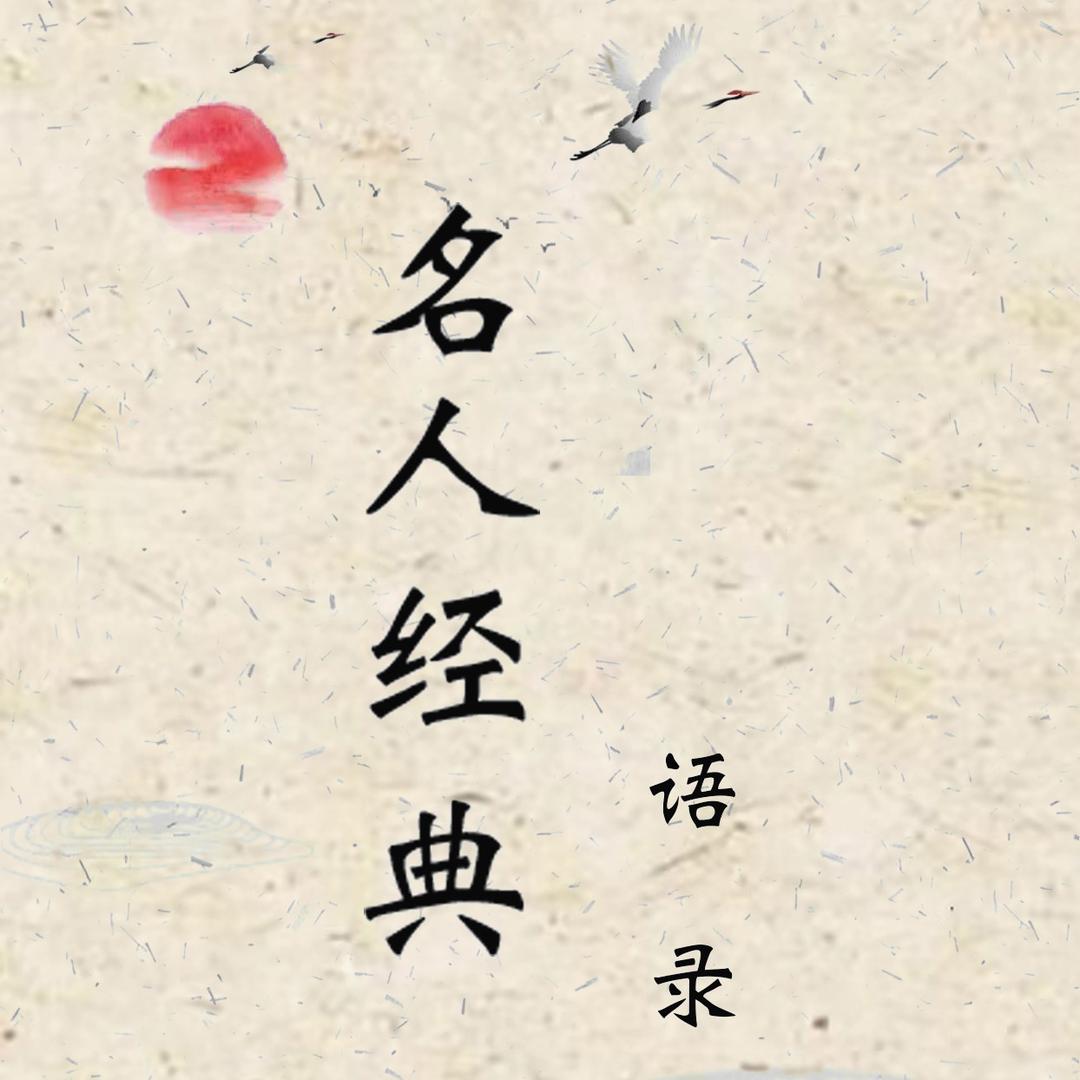 名人经典
语录